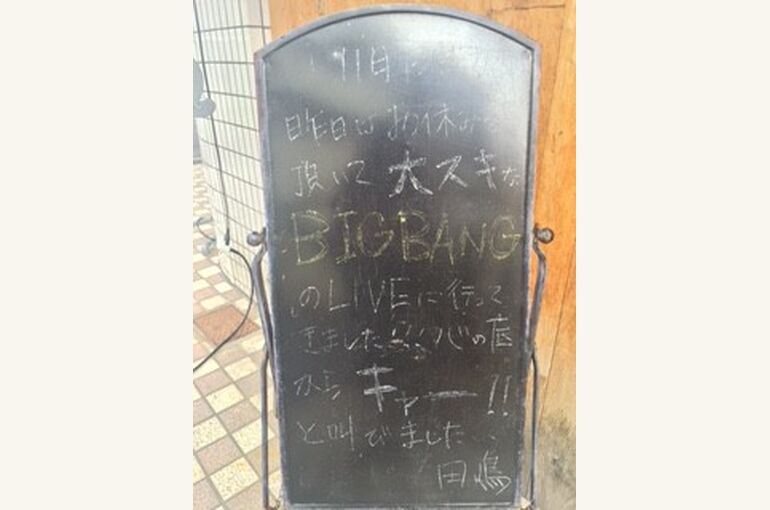 11日
昨日はお休みを
頂いて大スキな
BIGBANG
のLIVEに行って
きました の底
から キャー!!
と叫びました
田嶋